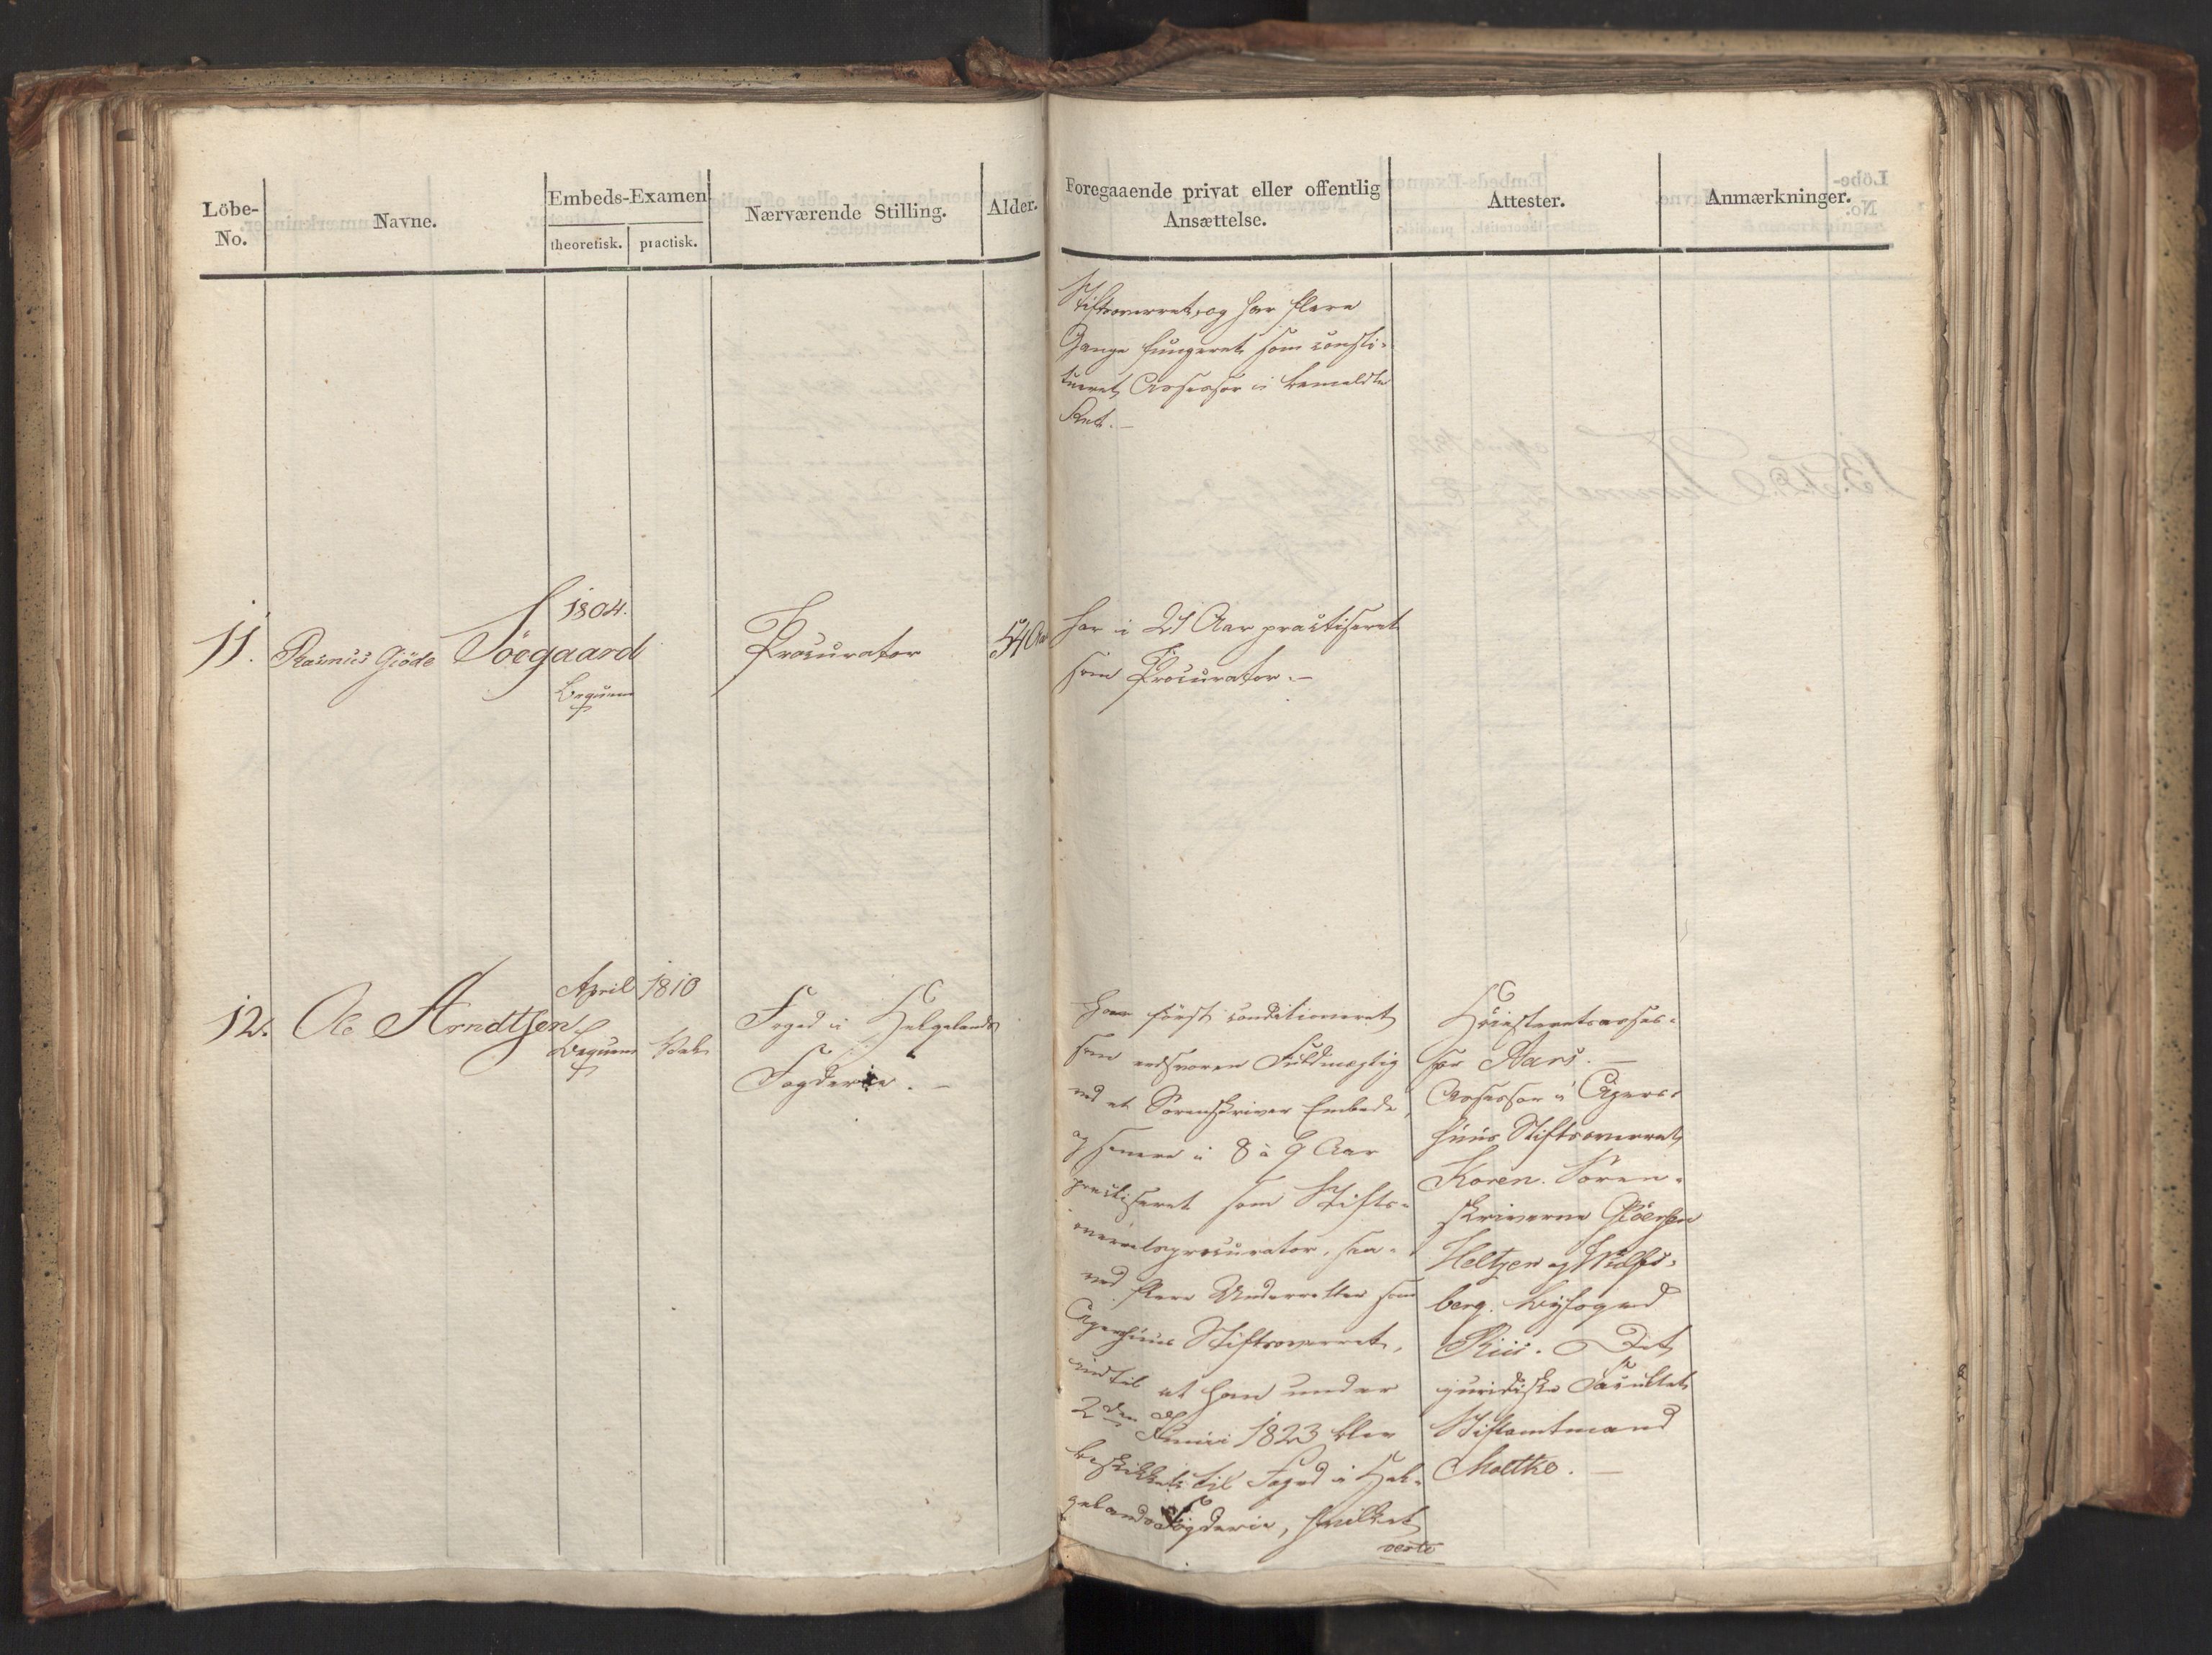 Löbe-
No.
Navne.
Embeds-Examen
theoretisk.
practisk.
Nærværende Stilling.
Alder.
Foregaaende privat eller offentlig
Ansættelse.
Attester.
Anmærkninger.
Stiftsoverret, og har flere
Gange fungeret som consti-
tueret Assessor i bemeldte
Ret. —
11.
Rasmus Giöde Söegaard
1804.
Bequem
Procurator
54 Aar
har i 21 Aar practiseret
som Procurator. —
12.
Ole Arndtsen
April 1810
Bequem
Foged i Helgelands
Fogderie. —
Har först conditioneret
som edsvoren Fuldmægtig
ved et Sorenskriver Embede,
og senere i 8 à 9 Aar
practiseret som Stifts-
overretsprocurator, saa-
vel ved flere Underretter som
Agershuus Stiftsoverret,
indtil at han under
2den Junii 1823 blev
beskikket til Foged i Hel-
gelands Fogderie, hvilket
verte
Höiesteretsasses-
sor Aars. —
Assessor i Agers-
huus Stiftsoverret
Koren. Soren-
skriverne Gløersen
Heltzen og Wulfs-
berg. Byfoged
Riis. Det
juridiske Facultet
Stiftamtmand
Moltke. —